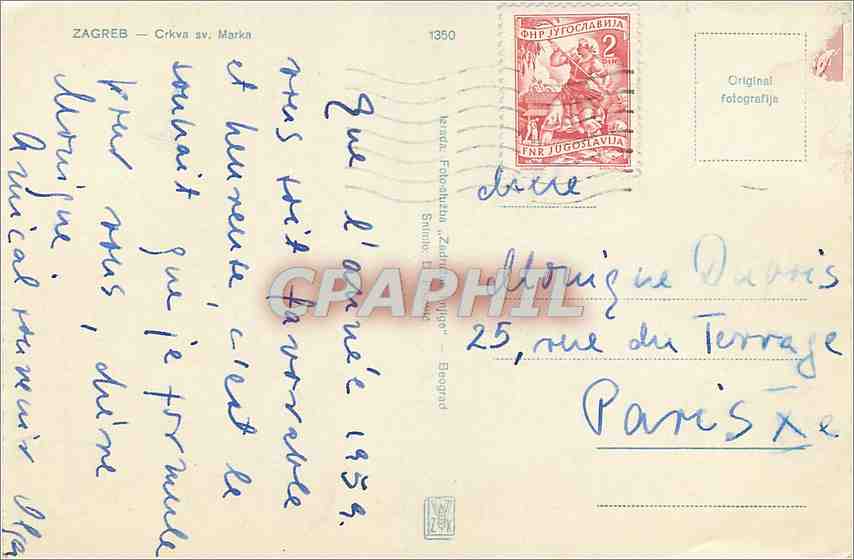 ZAGREB — Crkva sv. Marka
1350
ФНР ЈУГОСЛАВИЈА
2
DIN
FNR JUGOSLAVIJA
Original
fotografija
Que l'année 1959.
vous soit favorable
et heureuse, c'est le
souhait que je formule
pour vous, chère
Monique
Amical souvenir Olga
Izrada: Foto-služba „Zadružna knjiga" — Beograd
Snimio:
CPARPHIL
Monique Dupris
25, rue du Terrage
Paris Xe